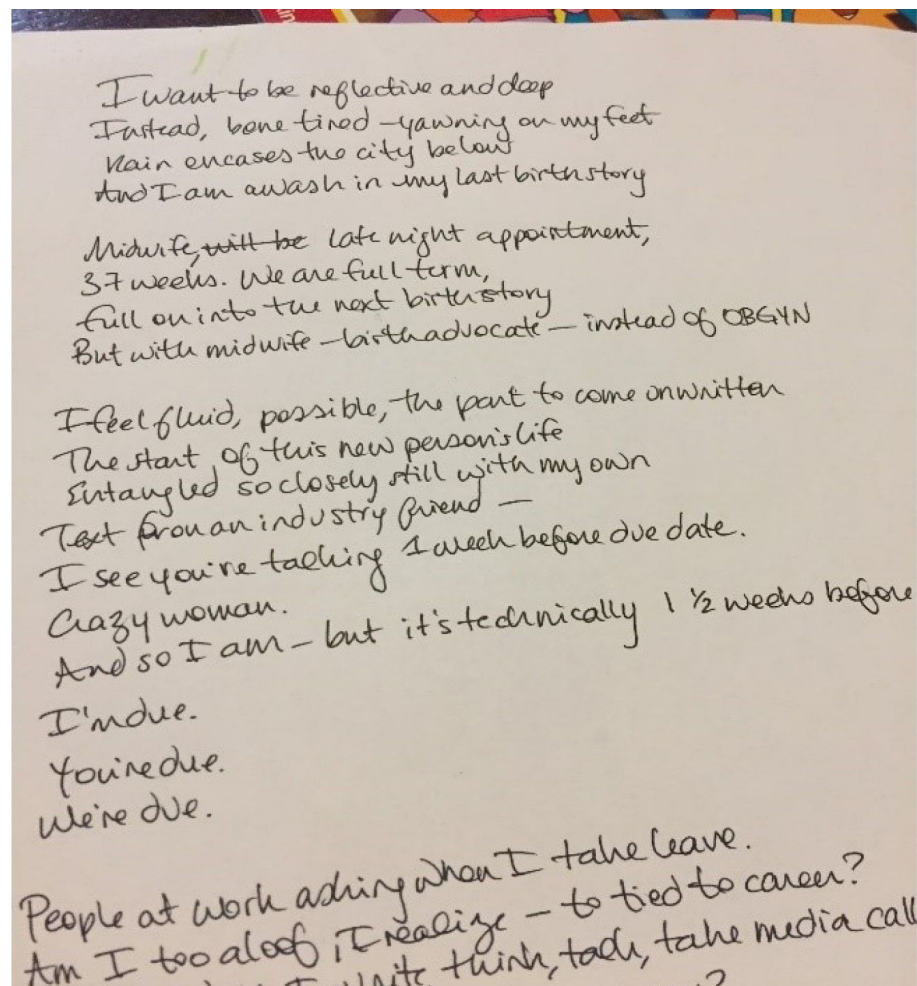 in
I want to be reflective and deep
Instead, bone tired - yawning on my feet
Rain encases the city below
And I am awash in my last birth story
Midwife, will be late night appointment,
37 weeks. We are full term,
full on into the next birth story
But with midwife - birth advocate - instead of OBGYN
I feel fluid, possible, the part to come unwritten
The start of this new person's life
Entangled so closely still with my own
Text from an industry friend -
I see you're talking 1 week before due date.
Crazy woman.
And so I am - but it's technically 1 ½ weeks before
I'm due.
You're due.
We're due.
People at work asking when I take leave.
Am I too aloof, I realize - to tied to career?
I write think, talk, take media call